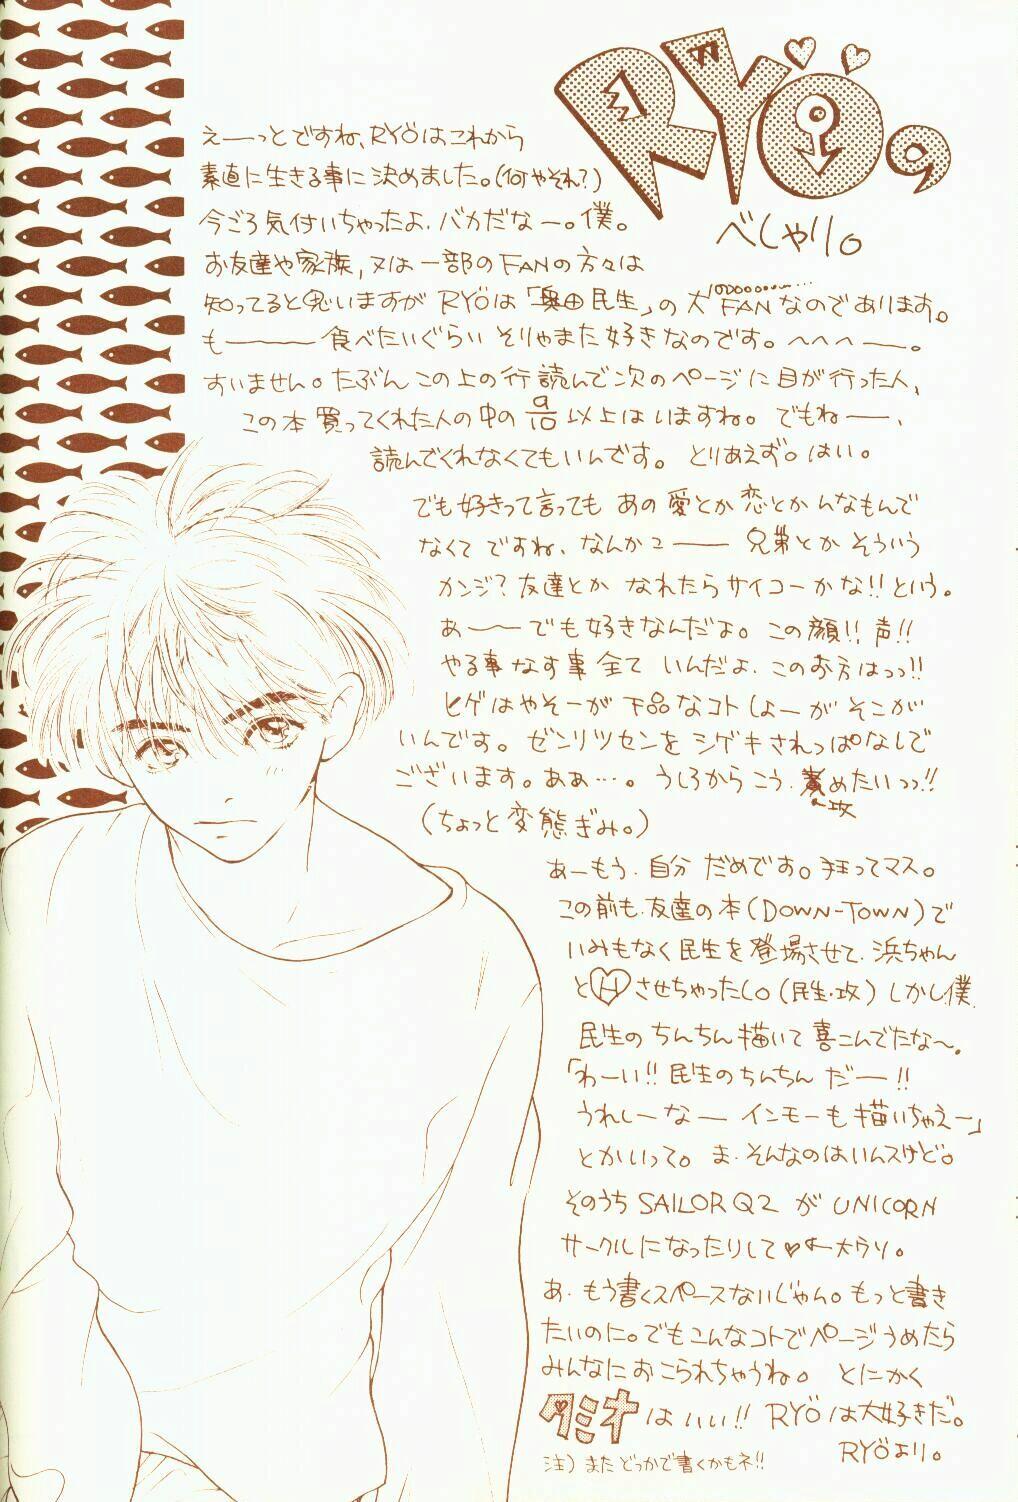 RYÖの
べしゃり。
えーっとですね、RYÖはこれから
素直に生きる事に決めました。(何やそれ?)
今ごろ気付いちゃったよ、バカだなー。僕。
お友達や家族,又は一部のFANの方々は
知ってると思いますが RYÖは「奥田民生」の大FANなのであります。
も―――食べたいぐらい そりゃまた好きなのです。へへへー。
すいません。たぶん この上の行 読んで次のページに目が行った人、
この本 買ってくれた人の中の 9/10 以上はいますね。でもねー、
読んでくれなくてもいんです。とりあえず。はい。
でも好きって言っても あの 愛とか恋とか んなもんで
なくて ですね、なんかこー― 兄弟とか そういう
カンジ?友達とか なれたらサイコーかな!!という。
あ〜〜でも好きなんだよ。この顔!!声!!
やる事なす事 全て いんだよ、このお方はっっ!!
ヒゲはやそーが 下品なコトしよーが そこが
いんです。ゼンリツセンを シゲキされっぱなしで
ございます。ああ…。うしろからこう、責めたいっっ!!
攻
(ちょっと変態ぎみ。)
あーもう、自分 だめです。狂ってマス。
この前も、友達の本(DOWN-TOWN)で
いみもなく民生を登場させて、浜ちゃん
とHさせちゃったし。(民生・攻)しかし僕、
民生の ちんちん描いて 喜こんでたな〜。
「わーい!!民生のちんちん だー!!
うれしーなー インモーも描いちゃえー」
とかいって。ま、そんなのはいんスけど。
そのうち SAILOR Q2 が UNICORN
サークルになったりして♥←大ウソ。
あ、もう書くスペースないじゃん。もっと書き
たいのに。でもこんなコトでページうめたら
みんなにおこられちゃうね。とにかく
タミオはいい!!RYÖは大好きだ。
RYÖより。
注)また どっかで書くかもネ!!